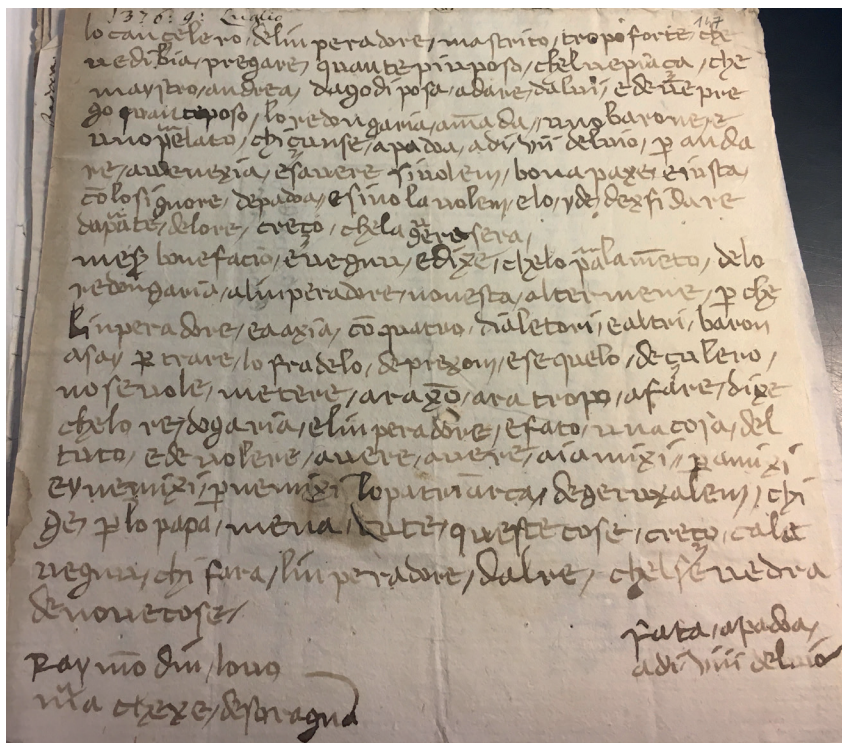 1376: 9: Luglio
147
lo canzelero, delinperadore, mascrito, tropo forte che
ve dibia, pregare, quante pinposo, chel ve piaça, che
maystro, andrea, dago di posa, adare, dalui, e de vẽ pre
go quanteposo, lo redongaria, amãda, uno barone, e
uno p̃elato, chi çunse, apadoa, adi, viii deluio, p̱ anda
re, avenexia, esavere sivolem, bona paxe, eiusta,
cõ losignore, depadoa, esivo lavolem, elo, re, dexfidare
dap̃ate, delore, creço, chela g̃erasera,
mes̱ bonefacio, e vegnu, e dixe, chelo p̃alamẽto, delo
redongaria, alinperadore, novesta, altermene, p̱ che
linperadore, eaaxia, cõ quatro, dialetori, e altri, baron
asay p̱ trare, lo fradelo, deprexom, esequelo, deçulero,
no se vole, metere, araxõ, ara tropo, afare, dixe
chelo re, dogaria, elinperadore, efato, una cosa, del
tuto, ede volere, avere, avere, aiamixi, p̱ amixi
eynemixi, p̱ nemixi lo patriarca, degeruxalem, chi
ge, p̱ lo papa, mena, tute, queste cose, creço, cala
vegnu, chi fara, linperadore, dalre, chelsẽ vedra
denovecose,
fata, apadoa,
adi viiii deluio
Raymõdin, lovo
m̃a chexe, desoragna